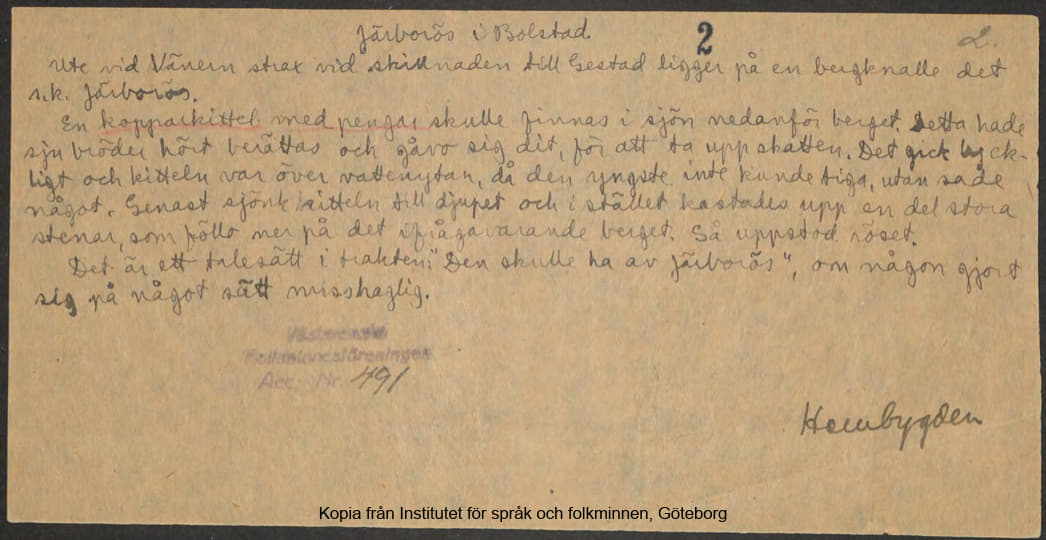 Järborös i Bolstad. 2 2.
Ute vid Vänern strax vid skillnaden till Gestad ligger på en bergknalle det
s.k. Järborös.
En kopparkittel med pengar skulle finnas i sjön nedanför berget. Detta hade
sju bröder hört berättas och gåvo sig dit, för att ta upp skatten. Det gick lyck-
ligt och kitteln var över vattenytan, då den yngste inte kunde tiga, utan sade
något. Genast sjönk kitteln till djupet och i stället kastades upp en del stora
stenar, som föllo ner på det ifrågavarande berget. Så uppstod röset.
Det är ett talesätt i trakten: "Den skulle ha av Järborös", om någon gjort
sig på något sätt misshaglig.
Västsvenska
Folkminnesföreningen
Acc. Nr. 491
Hembygden
Kopia från Institutet för språk och folkminnen, Göteborg